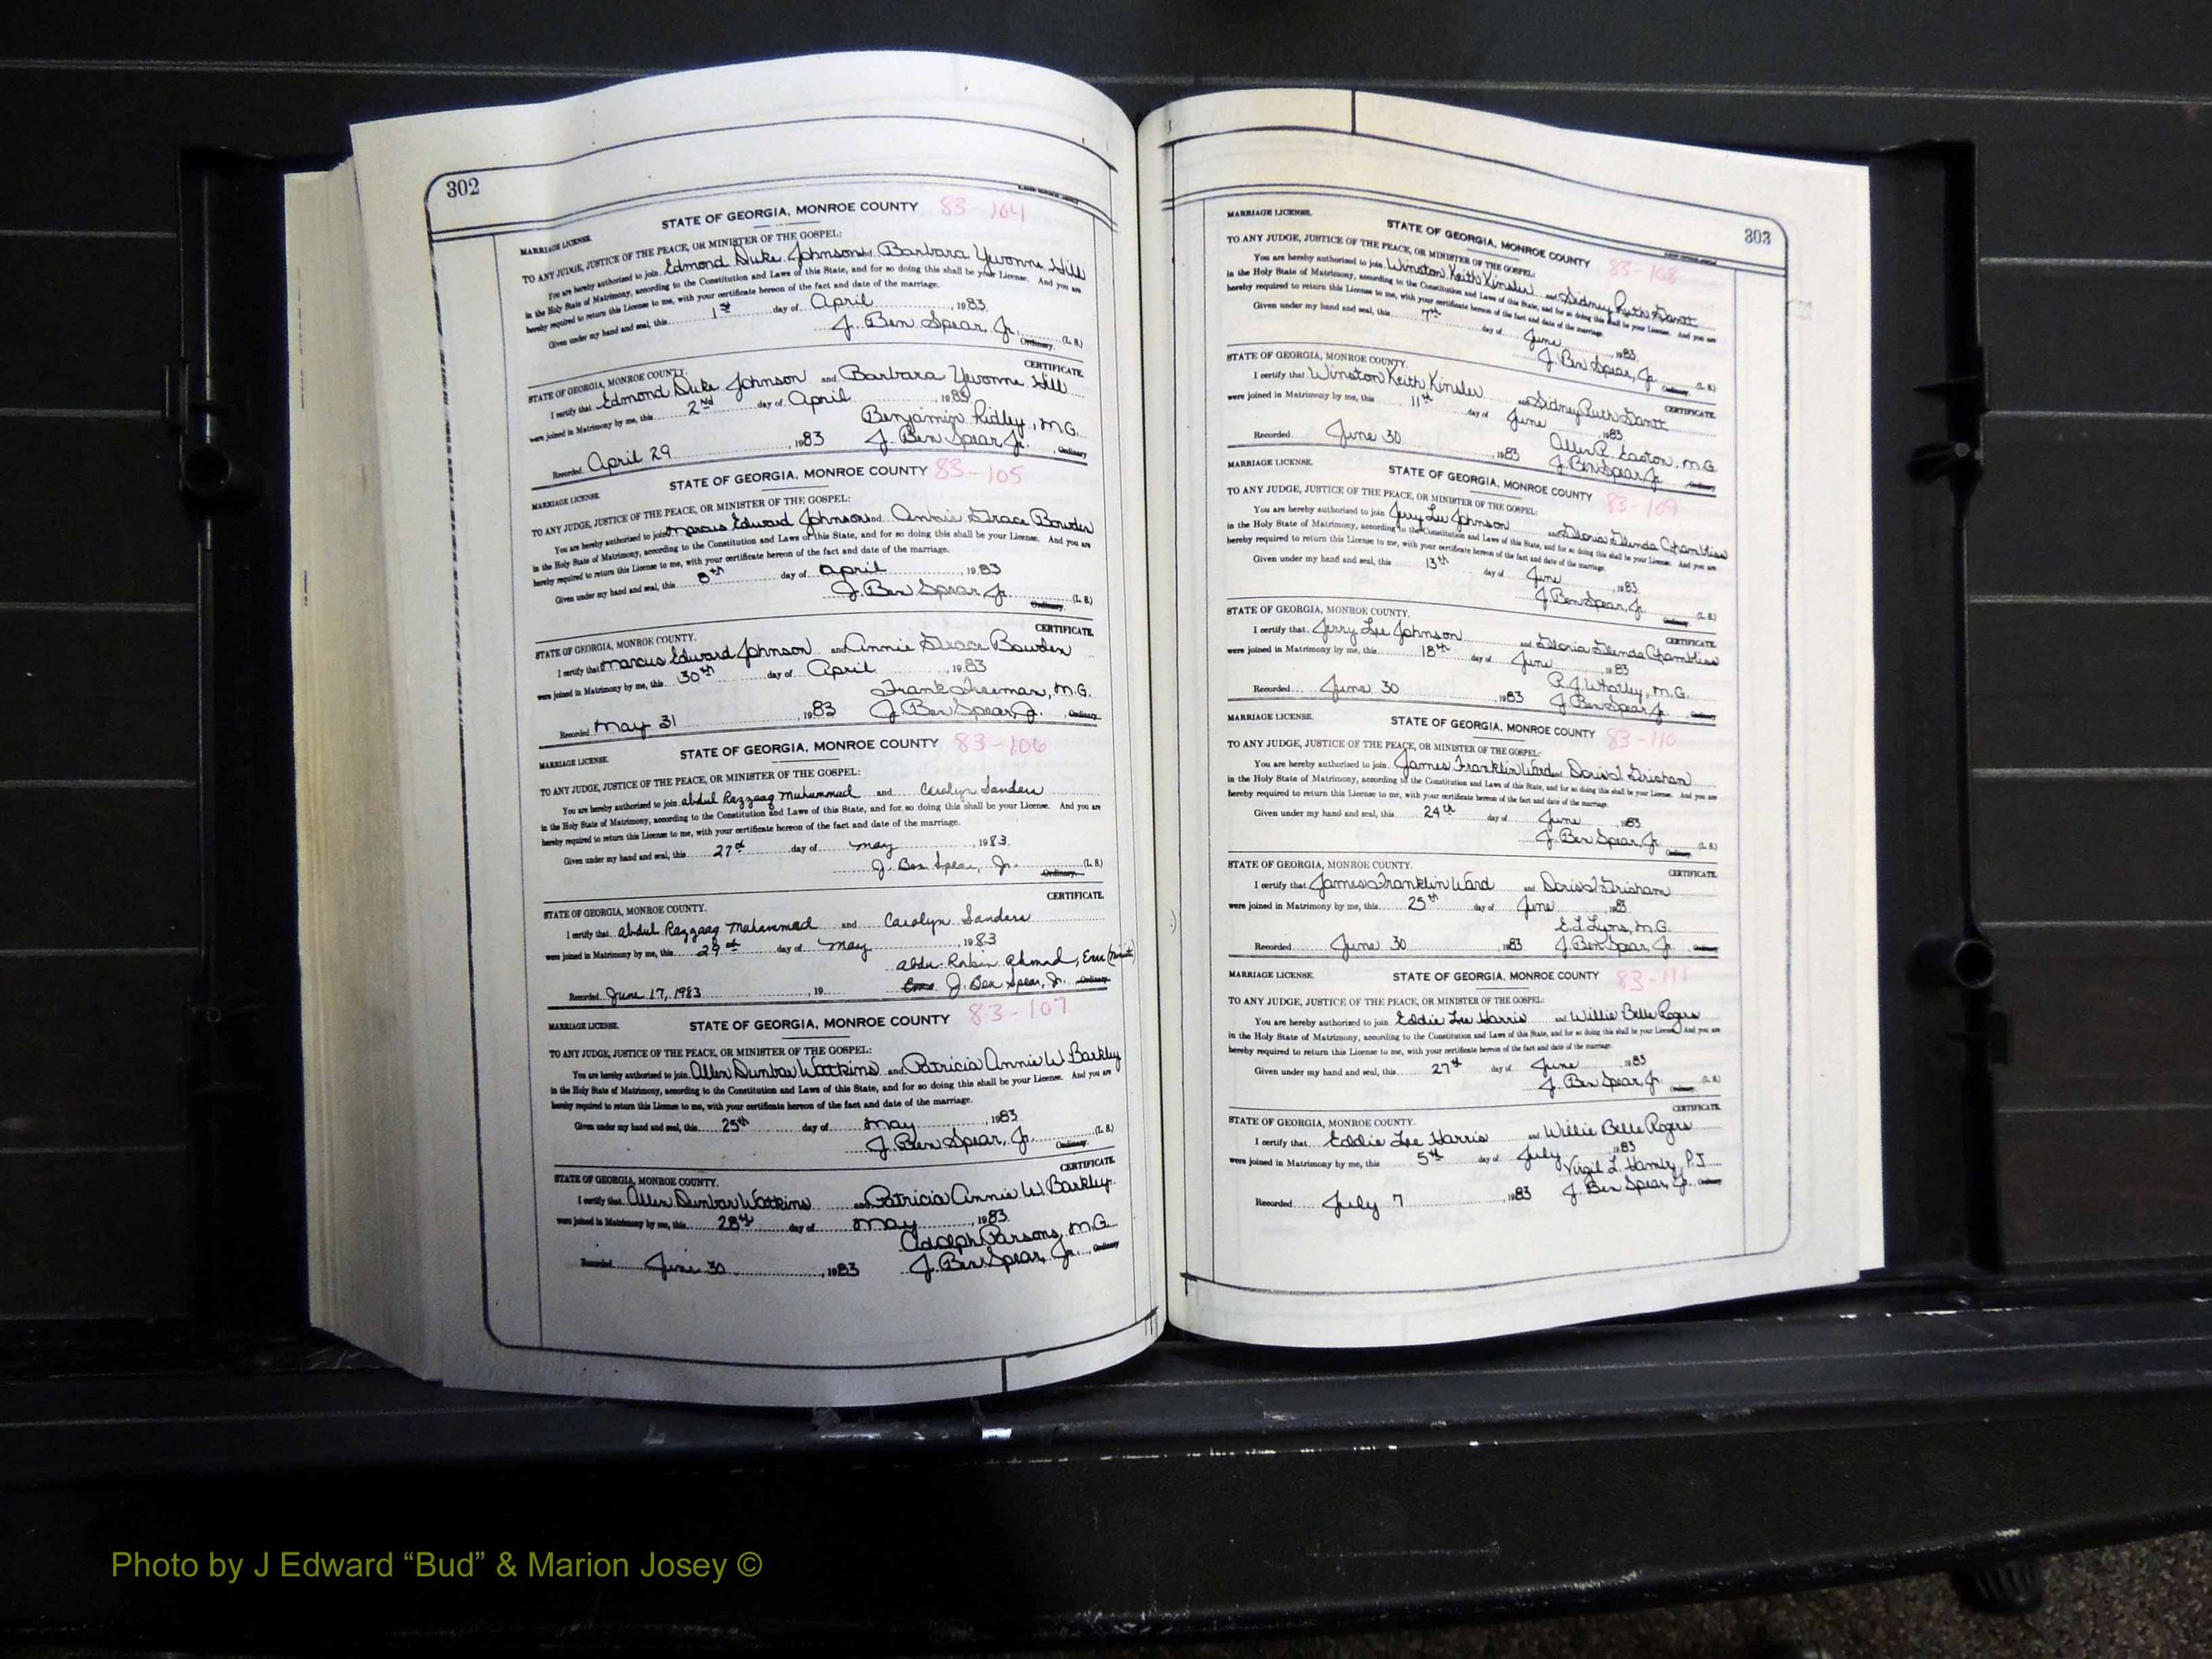 302
STATE OF GEORGIA, MONROE COUNTY 83-104
MARRIAGE LICENSE.
TO ANY JUDGE, JUSTICE OF THE PEACE, OR MINISTER OF THE GOSPEL:
You are hereby authorized to join Edmond Duke Johnson and Barbara Yvonne Hill
in the Holy State of Matrimony, according to the Constitution and Laws of this State, and for so doing this shall be your License. And you are
hereby required to return this License to me, with your certificate hereon of the fact and date of the marriage.
Given under my hand and seal, this 1st day of April, 1983
J. Ben Spear, Jr. (L. S.)
Ordinary.
CERTIFICATE.
STATE OF GEORGIA, MONROE COUNTY.
I certify that Edmond Duke Johnson and Barbara Yvonne Hill
were joined in Matrimony by me, this 2nd day of April, 1983
Benjamin Ridley, M.G.
Recorded April 29, 1983 J. Ben Spear, Jr., Ordinary
STATE OF GEORGIA, MONROE COUNTY 83-105
MARRIAGE LICENSE.
TO ANY JUDGE, JUSTICE OF THE PEACE, OR MINISTER OF THE GOSPEL:
You are hereby authorized to join Marcus Edward Johnson and Annie Grace Bowden
in the Holy State of Matrimony, according to the Constitution and Laws of this State, and for so doing this shall be your License. And you are
hereby required to return this License to me, with your certificate hereon of the fact and date of the marriage.
Given under my hand and seal, this 8th day of April, 1983
J. Ben Spear, Jr. (L. S.)
Ordinary.
CERTIFICATE.
STATE OF GEORGIA, MONROE COUNTY.
I certify that Marcus Edward Johnson and Annie Grace Bowden
were joined in Matrimony by me, this 30th day of April, 1983
Frank Freeman, M.G.
Recorded May 31, 1983 J. Ben Spear, Jr., Ordinary
STATE OF GEORGIA, MONROE COUNTY 83-106
MARRIAGE LICENSE.
TO ANY JUDGE, JUSTICE OF THE PEACE, OR MINISTER OF THE GOSPEL:
You are hereby authorized to join Abdul Razzaag Muhammad and Carolyn Sanders
in the Holy State of Matrimony, according to the Constitution and Laws of this State, and for so doing this shall be your License. And you are
hereby required to return this License to me, with your certificate hereon of the fact and date of the marriage.
Given under my hand and seal, this 27th day of May, 1983
J. Ben Spear, Jr. (L. S.)
Ordinary.
CERTIFICATE.
STATE OF GEORGIA, MONROE COUNTY.
I certify that Abdul Razzaag Muhammad and Carolyn Sanders
were joined in Matrimony by me, this 29th day of May, 1983
Ahmad,
Recorded June 17, 1983, 19 J. Ben Spear, Jr. Ordinary
83-107
MARRIAGE LICENSE. STATE OF GEORGIA, MONROE COUNTY
TO ANY JUDGE, JUSTICE OF THE PEACE, OR MINISTER OF THE GOSPEL:
You are hereby authorized to join Allen Dunbar Watkins and Patricia Annie W Barkley
in the Holy State of Matrimony, according to the Constitution and Laws of this State, and for so doing this shall be your License. And you are
hereby required to return this License to me, with your certificate hereon of the fact and date of the marriage.
Given under my hand and seal, this 25th day of May, 1983
J. Ben Spear, Jr. (L. S.)
Ordinary.
CERTIFICATE.
STATE OF GEORGIA, MONROE COUNTY.
I certify that Allen Dunbar Watkins and Patricia Annie W. Barkley
were joined in Matrimony by me, this 28th day of May, 1983
Adolph Parsons, M.G.
Recorded June 30, 1983 J. Ben Spear, Jr., Ordinary
303
MARRIAGE LICENSE. STATE OF GEORGIA, MONROE COUNTY 83-108
TO ANY JUDGE, JUSTICE OF THE PEACE, OR MINISTER OF THE GOSPEL:
You are hereby authorized to join Winston Keith Kinsler and Sidney Ruth Gantt
in the Holy State of Matrimony, according to the Constitution and Laws of this State, and for so doing this shall be your License. And you are
hereby required to return this License to me, with your certificate hereon of the fact and date of the marriage.
Given under my hand and seal, this 7th day of June, 1983
J. Ben Spear, Jr. (L. S.)
Ordinary.
CERTIFICATE.
STATE OF GEORGIA, MONROE COUNTY.
I certify that Winston Keith Kinsler and Sidney Ruth Gantt
were joined in Matrimony by me, this 11th day of June, 1983
Allen R. Easton, M.G.
Recorded June 30, 1983 J. Ben Spear, Jr. Ordinary
MARRIAGE LICENSE. STATE OF GEORGIA, MONROE COUNTY 83-109
TO ANY JUDGE, JUSTICE OF THE PEACE, OR MINISTER OF THE GOSPEL:
You are hereby authorized to join Jerry Lee Johnson and Gloria Glenda Chambliss
in the Holy State of Matrimony, according to the Constitution and Laws of this State, and for so doing this shall be your License. And you are
hereby required to return this License to me, with your certificate hereon of the fact and date of the marriage.
Given under my hand and seal, this 13th day of June, 1983
J. Ben Spear, Jr. (L. S.)
Ordinary.
CERTIFICATE.
STATE OF GEORGIA, MONROE COUNTY.
I certify that Jerry Lee Johnson and Gloria Glenda Chambliss
were joined in Matrimony by me, this 18th day of June, 1983
R. J. Whatley, M.G.
Recorded June 30, 1983 J. Ben Spear, Jr. Ordinary
MARRIAGE LICENSE. STATE OF GEORGIA, MONROE COUNTY 83-110
TO ANY JUDGE, JUSTICE OF THE PEACE, OR MINISTER OF THE GOSPEL:
You are hereby authorized to join James Franklin Ward and Doris J Grisham
in the Holy State of Matrimony, according to the Constitution and Laws of this State, and for so doing this shall be your License. And you are
hereby required to return this License to me, with your certificate hereon of the fact and date of the marriage.
Given under my hand and seal, this 24th day of June, 1983
J. Ben Spear, Jr. (L. S.)
Ordinary.
CERTIFICATE.
STATE OF GEORGIA, MONROE COUNTY.
I certify that James Franklin Ward and Doris J Grisham
were joined in Matrimony by me, this 25th day of June, 1983
E. L. Lyons, M.G.
Recorded June 30, 1983 J. Ben Spear, Jr. Ordinary
MARRIAGE LICENSE. STATE OF GEORGIA, MONROE COUNTY 83-111
TO ANY JUDGE, JUSTICE OF THE PEACE, OR MINISTER OF THE GOSPEL:
You are hereby authorized to join Eddie Lee Harris and Willie Belle Rogers
in the Holy State of Matrimony, according to the Constitution and Laws of this State, and for so doing this shall be your License. And you are
hereby required to return this License to me, with your certificate hereon of the fact and date of the marriage.
Given under my hand and seal, this 27th day of June, 1983
J. Ben Spear, Jr. (L. S.)
Ordinary.
CERTIFICATE.
STATE OF GEORGIA, MONROE COUNTY.
I certify that Eddie Lee Harris and Willie Belle Rogers
were joined in Matrimony by me, this 5th day of July, 1983
Virgil L. Hamby, P.J.
Recorded July 7, 1983 J. Ben Spear, Jr. Ordinary
Photo by J Edward “Bud” & Marion Josey ©